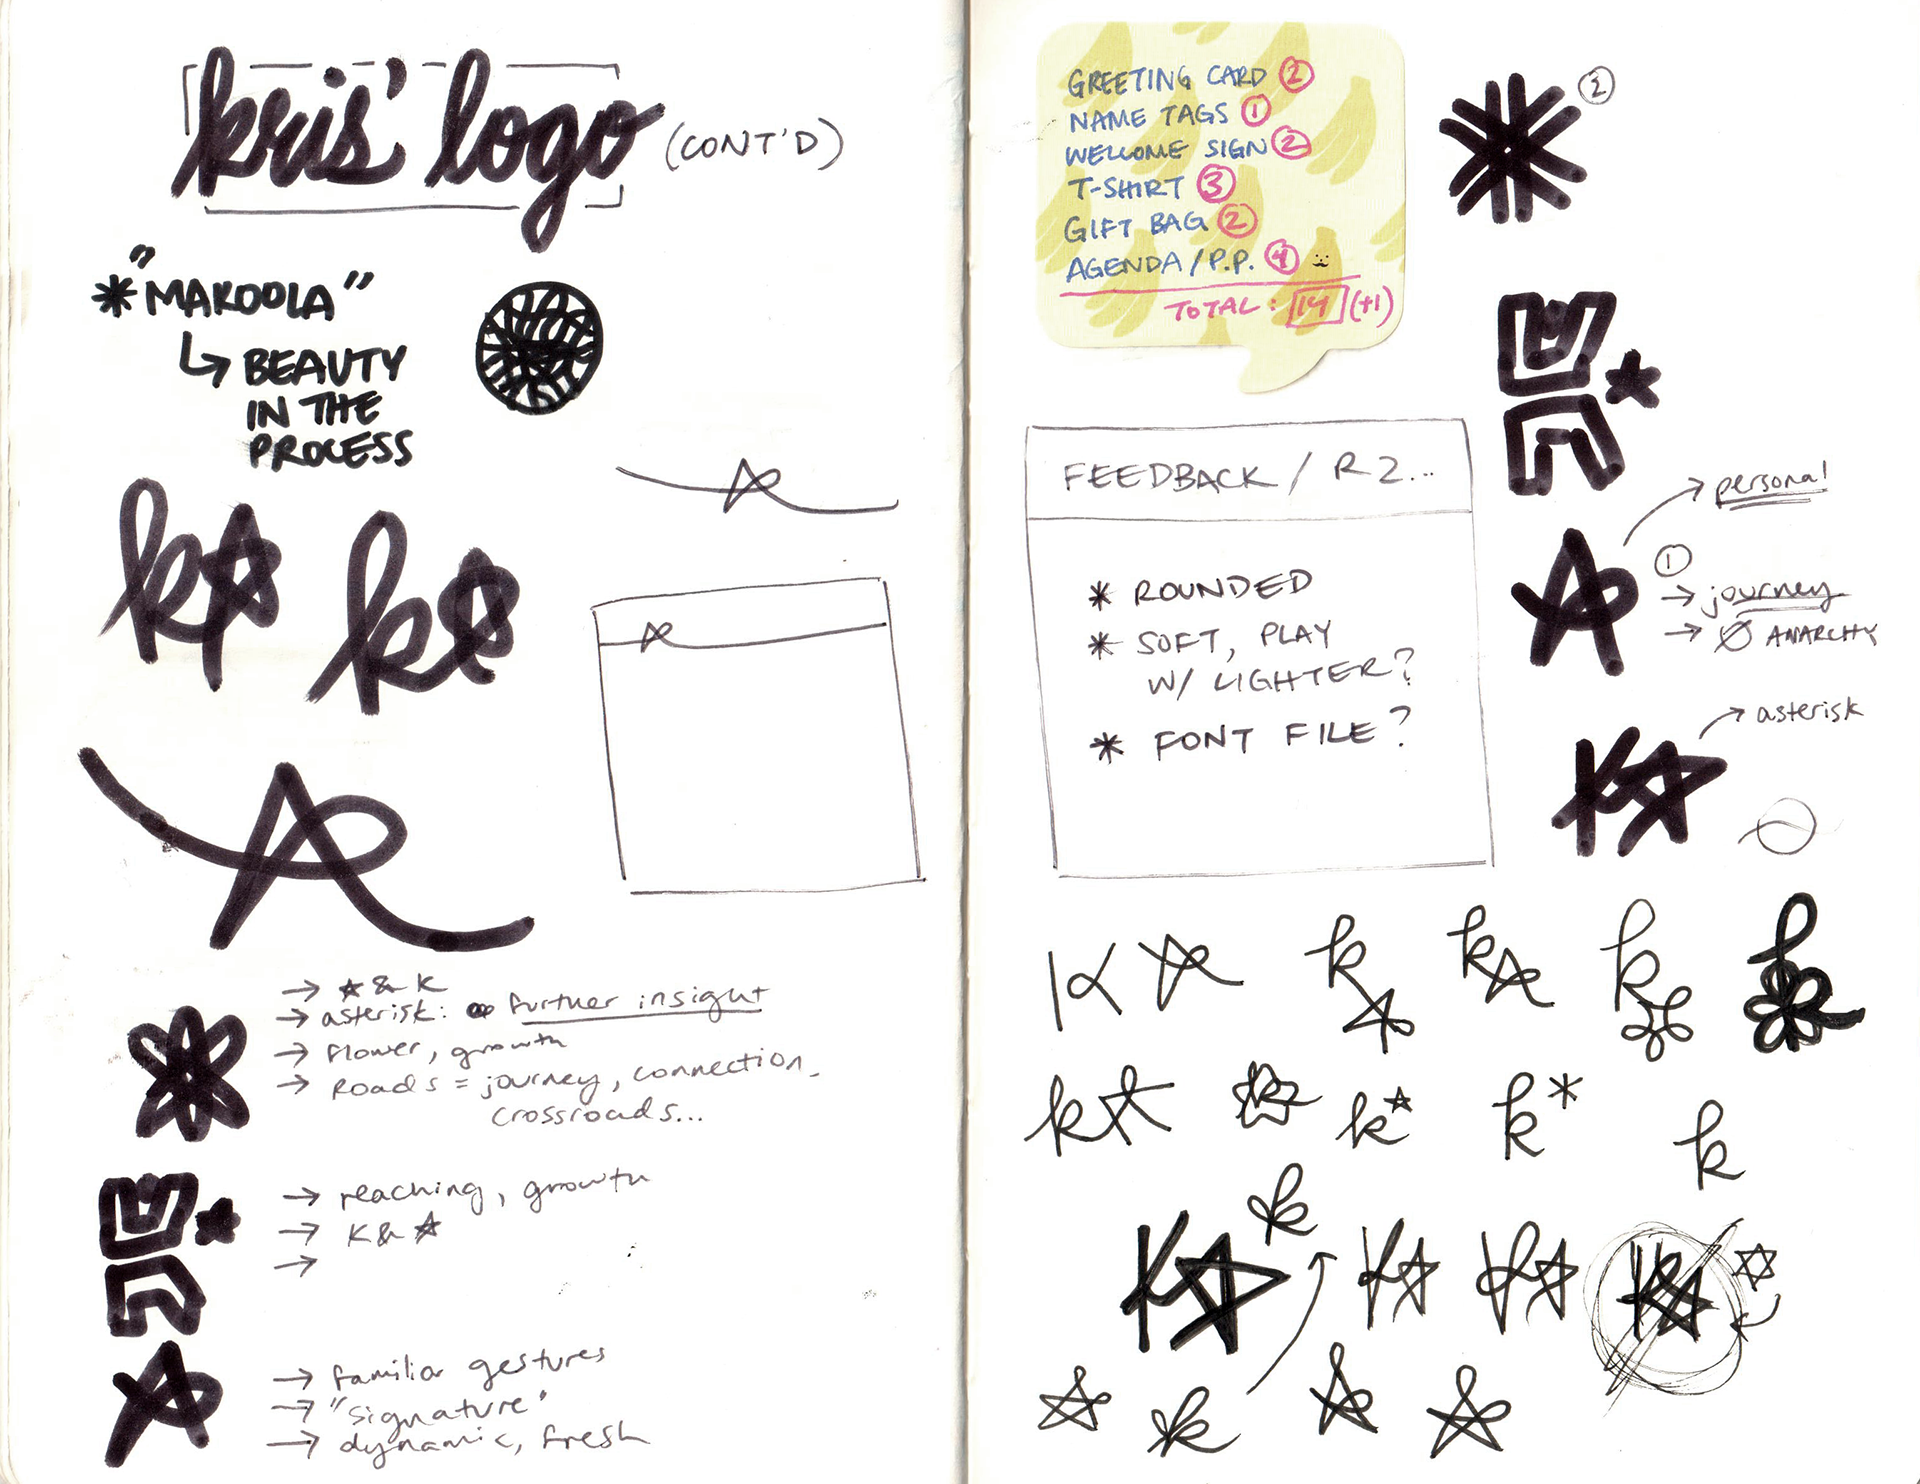 kris' logo (CONT'D)
* "MAKOOLA"
↳ BEAUTY
IN THE
PROCESS
k☆ k☆
→ ★ & K
→ asterisk: further insight
→ flower, growth
→ Roads = journey, connection,
crossroads...
→ reaching, growth
→ K & ☆
→
→ familiar gestures
→ "signature"
→ dynamic, fresh
GREETING CARD ②
NAME TAGS ①
WELCOME SIGN ②
T-SHIRT ③
GIFT BAG ②
AGENDA / P.P. ④
TOTAL: 14 (+1)
②
FEEDBACK / R2...
* ROUNDED
* SOFT, PLAY
W/ LIGHTER?
* FONT FILE?
→ personal
①
→ journey
→ Ø ANARCHY
→ asterisk
K☆
K ☆ k ☆ k☆ k k
k☆ k k* k* k
k
K☆ K☆ K☆ K☆
k